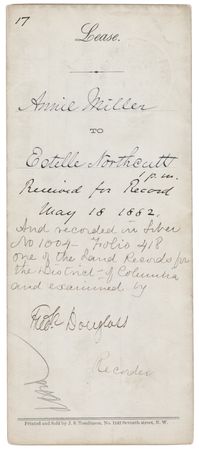 17
Lease.
Annie Miller
TO
Estelle Northcutt
1 p.m.
Received for Record
May 18 1882.
And recorded in Liber
No 1004 Folio 418
one of the Land Records for
the District of Columbia
and examined by
Fredk Douglass
Recorder
Printed and Sold by J. S. Tomlinson, No. 1142 Seventh street, N. W.